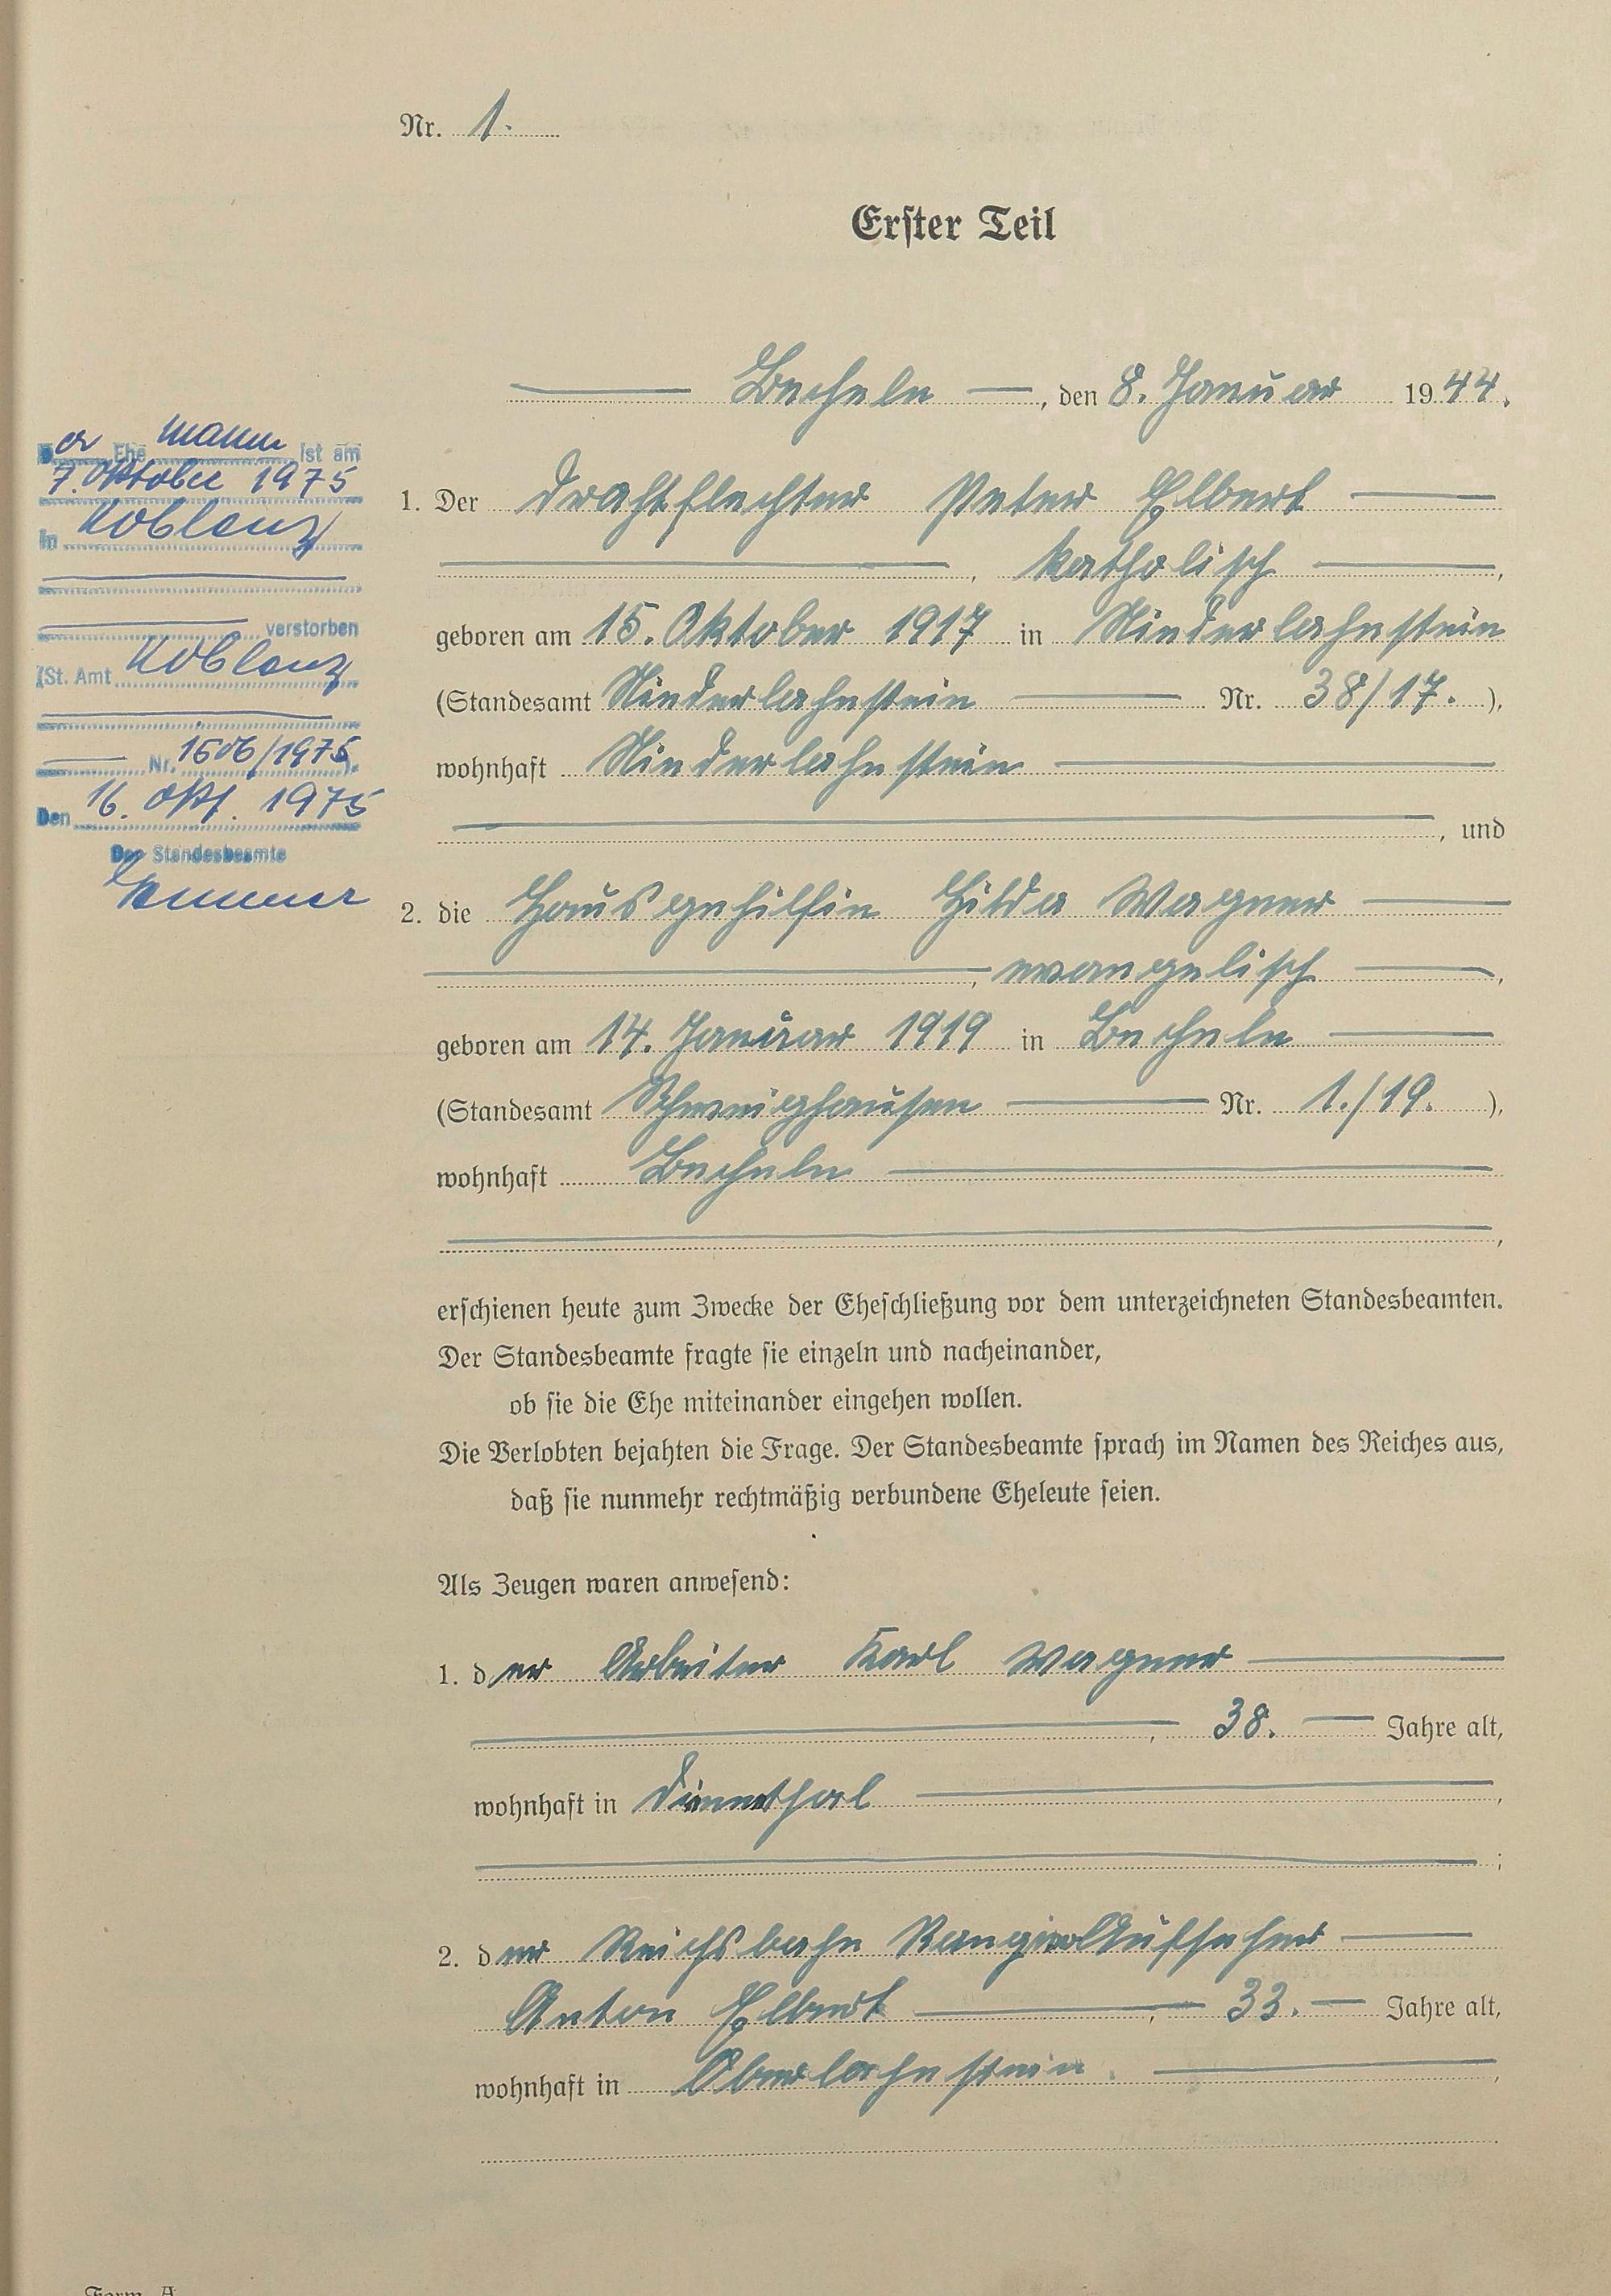 Nr. 1.
Erster Teil
Becheln, den 8. Januar 1944.
Der Ehemann ist am
7. Oktober 1975
in Koblenz
verstorben
(St. Amt Koblenz
Nr. 1506/1975).
Den 16. Okt. 1975
Der Standesbeamte
1. Der Drahtflechter Peter Elbert
, katholisch,
geboren am 15. Oktober 1917 in Niederlahnstein
(Standesamt Niederlahnstein Nr. 38/17.),
wohnhaft Niederlahnstein
, und
2. die Hausgehilfin Hilda Wagner
, evangelisch,
geboren am 14. Januar 1919 in Becheln
(Standesamt Schweighausen Nr. 1./19.),
wohnhaft Becheln
,
erschienen heute zum Zwecke der Eheschließung vor dem unterzeichneten Standesbeamten.
Der Standesbeamte fragte sie einzeln und nacheinander,
ob sie die Ehe miteinander eingehen wollen.
Die Verlobten bejahten die Frage. Der Standesbeamte sprach im Namen des Reiches aus,
daß sie nunmehr rechtmäßig verbundene Eheleute seien.
Als Zeugen waren anwesend:
1. der Arbeiter Karl Wagner
, 38. Jahre alt,
wohnhaft in Dienethal,
;
2. der Reichsbahn Rangieraufseher
Anton Elbert, 33. Jahre alt,
wohnhaft in Oberlahnstein.,
Form. A